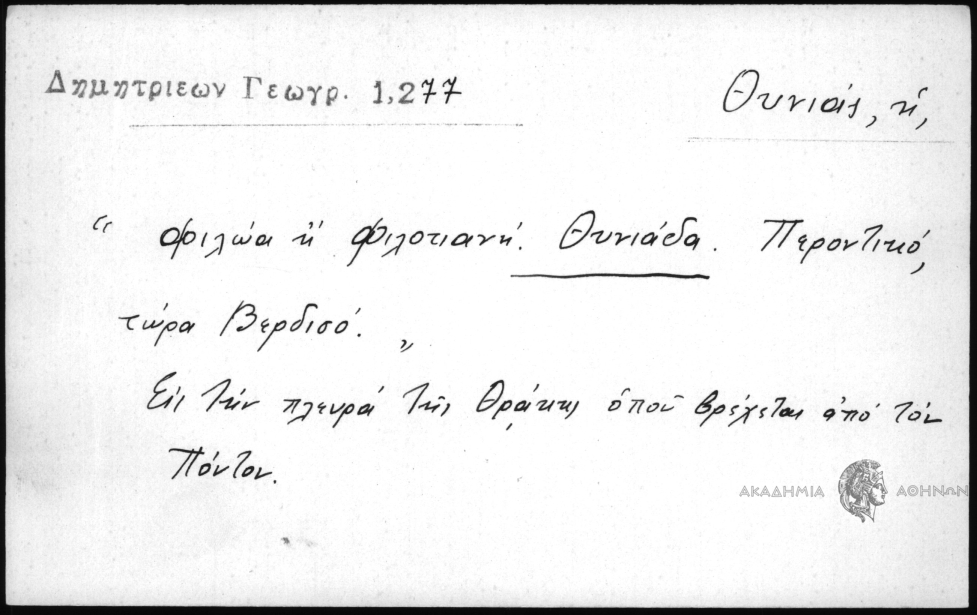 Δημητριεων Γεωγρ. 1,277
Θυνιάς, ἡ,
“ φιλώα ἤ φιλοτιανή. Θυνιάδα. Περοντικό,
τώρα Βερδισό. „
Εἰς τήν πλευρά τῆς Θράκης ὁποῦ βρέχεται ἀπό τόν
Πόντον.
ΑΚΑΔΗΜΙΑ ΑΘΗΝΩΝ